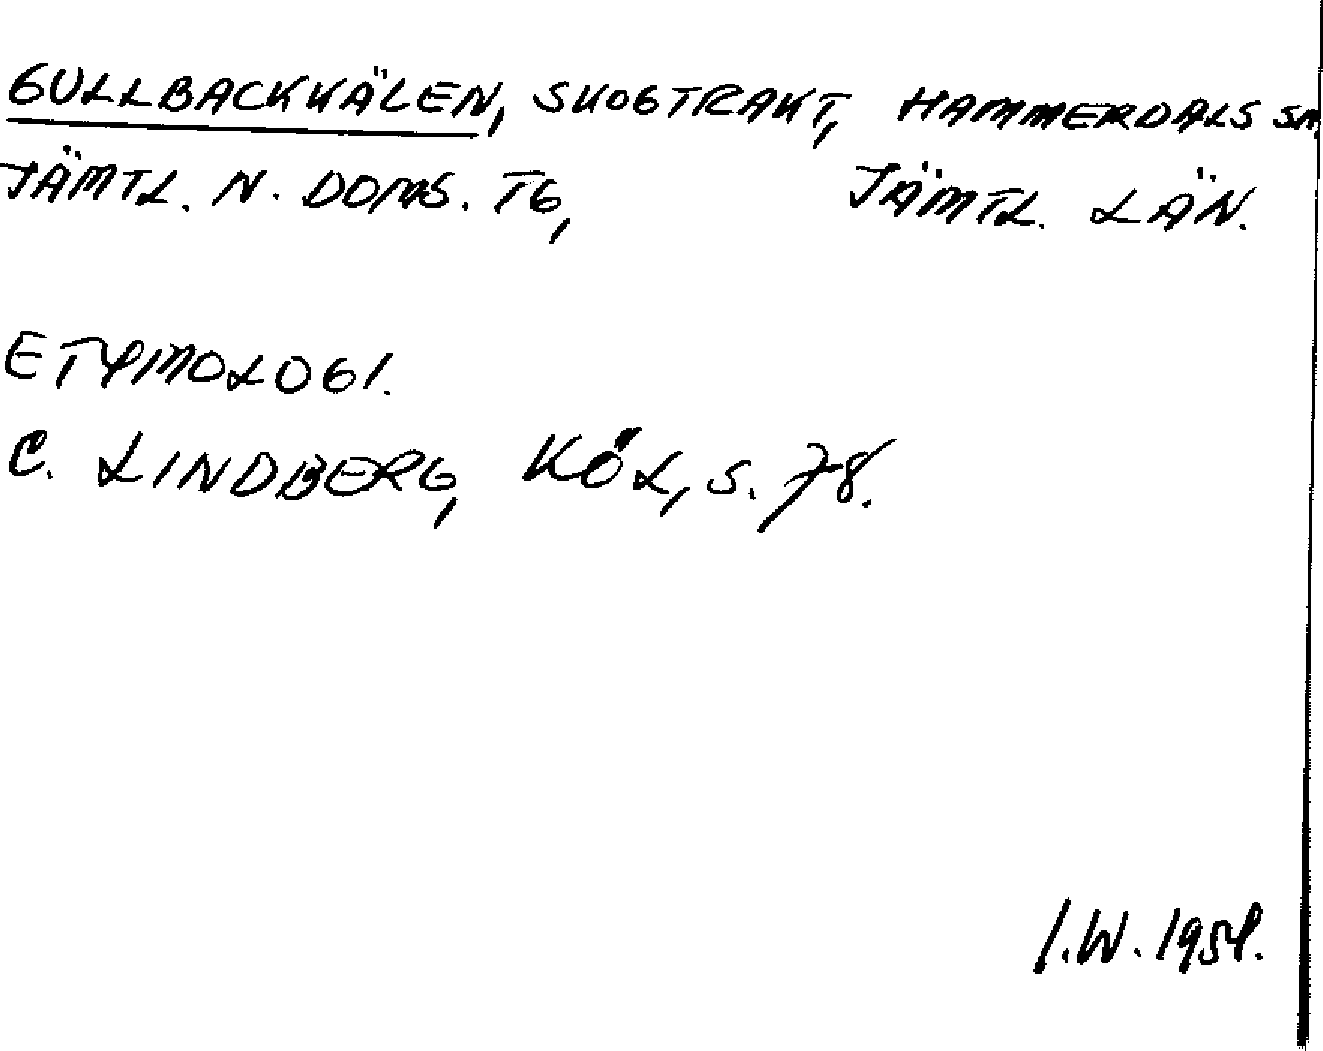 GULLBACKKÄLEN, SKOGTRAKT, HAMMERDALS SN
JÄMTL. N. DOMS. TG, JÄMTL. LÄN.
ETYMOLOGI.
C. LINDBERG, KÖL, S. 78.
I.W. 1954.